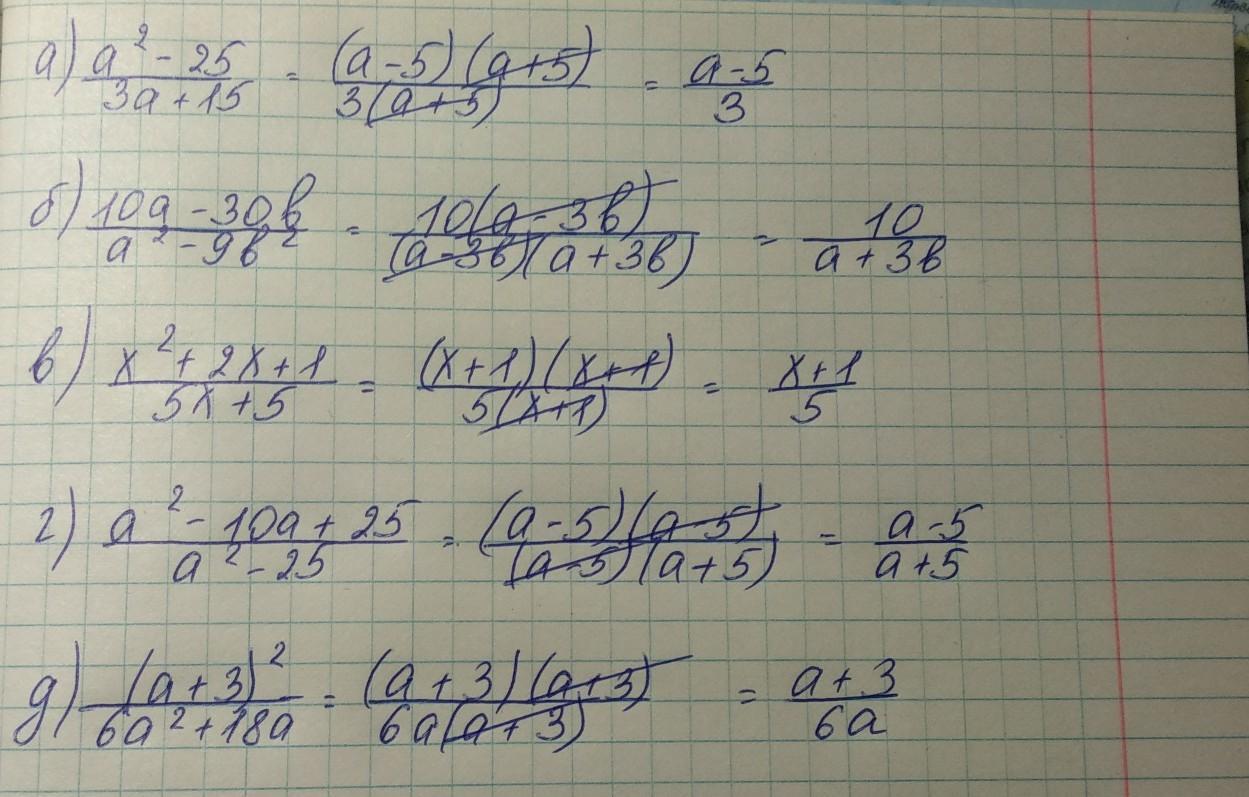 а) (a² - 25)/(3a + 15) = ((a - 5)(a + 5))/(3(a + 5)) = (a - 5)/3
б) (10a - 30b)/(a² - 9b²) = (10(a - 3b))/((a - 3b)(a + 3b)) = 10/(a + 3b)
в) (x² + 2x + 1)/(5x + 5) = ((x + 1)(x + 1))/(5(x + 1)) = (x + 1)/5
г) (a² - 10a + 25)/(a² - 25) = ((a - 5)(a - 5))/((a - 5)(a + 5)) = (a - 5)/(a + 5)
д) (a + 3)²/(6a² + 18a) = ((a + 3)(a + 3))/(6a(a + 3)) = (a + 3)/(6a)